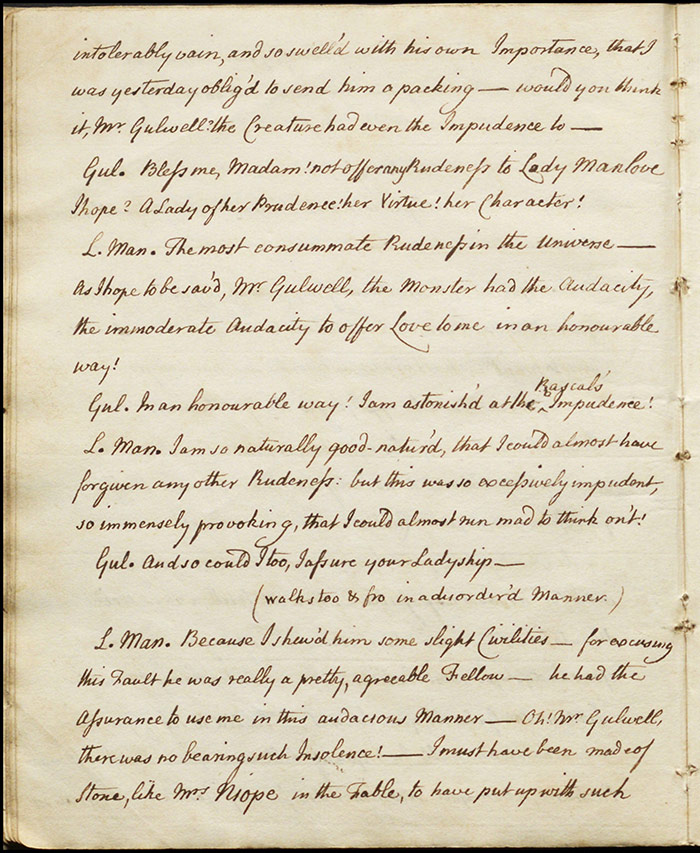 intolerably vain, and so swell'd with his own Importance, that I
was yesterday oblig'd to send him a packing — would you think
it, Mr. Gulwell? the Creature had even the Impudence to —
Gul. Bless me, Madam! not offer any Rudeness to Lady Manlove
I hope? A Lady of her Prudence! her Virtue! her Character!
L. Man. The most consummate Rudeness in the Universe —
As I hope to be sav'd, Mr. Gulwell, the Monster had the Audacity,
the immoderate Audacity to offer Love to me in an honourable
way!
Rascals'
Gul. In an honourable way! I am astonish'd at the ^ Impudence!
L. Man. I am so naturally good-natur'd, that I could almost have
forgiven any other Rudeness: but this was so excessively impudent,
so immensely provoking, that I could almost run mad to think on't!
Gul. And so could I too, I assure your Ladyship —
(walks too & fro in a disorder'd Manner.)
L. Man. Because I shew'd him some slight Civilities — for excusing
this Fault he was really a pretty, agreeable Fellow — he had the
Assurance to use me in this audacious Manner — Oh! Mr. Gulwell,
there was no bearing such Insolence! — I must have been made of
Stone, like Mrs Niope in the Fable, to have put up with such